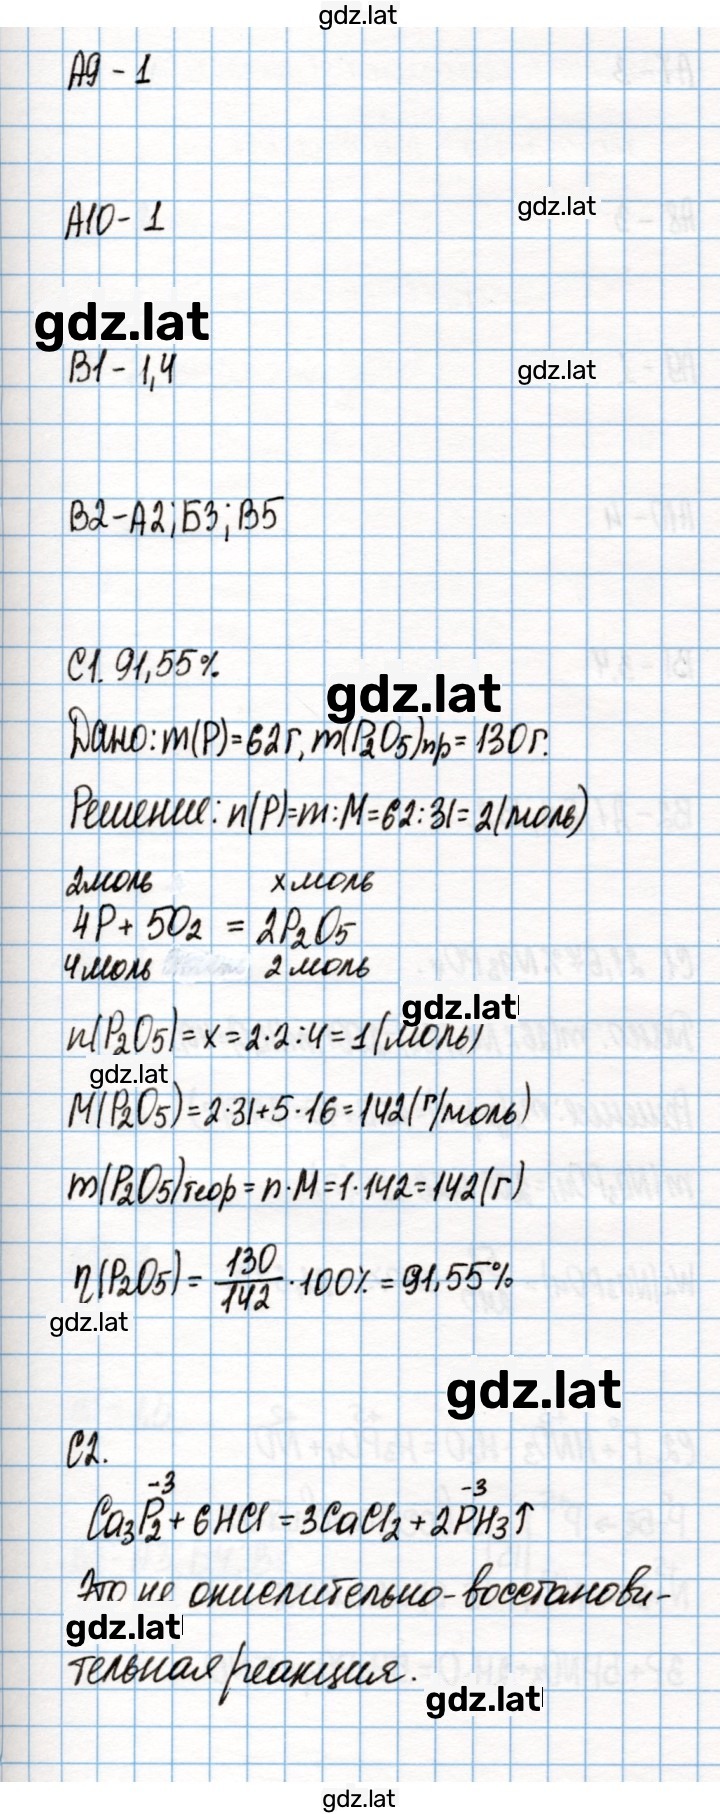 gdz.lat
А9 - 1
gdz.lat
А10 - 1
gdz.lat
gdz.lat
В1 - 1,4
В2 - А2; Б3; В5
С1. 91,55%
gdz.lat
Дано: m(P) = 62 г, m(P₂O₅)пр = 130 г.
Решение: n(P) = m : M = 62 : 31 = 2 (моль)
2 моль x моль
4P + 5O₂ = 2P₂O₅
4 моль 2 моль
gdz.lat
n(P₂O₅) = x = 2·2:4 = 1 (моль)
gdz.lat
M(P₂O₅) = 2·31+5·16 = 142 (г/моль)
m(P₂O₅)теор = n·M = 1·142 = 142 (г)
η(P₂O₅) = 130/142 · 100% = 91,55%
gdz.lat
gdz.lat
С2.
-3 -3
Ca₃P₂ + 6HCl = 3CaCl₂ + 2PH₃↑
Это не окислительно-восстанови-
gdz.lat
тельная реакция.
gdz.lat
gdz.lat